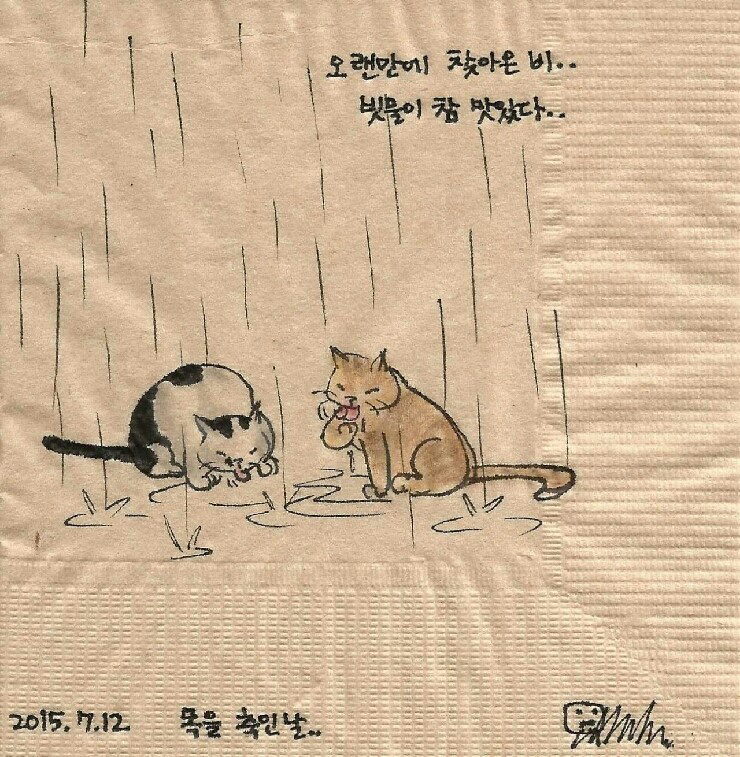 오랜만에 찾아온 비..
빗물이 참 맛있다..
2015. 7. 12 목을 축인 날..